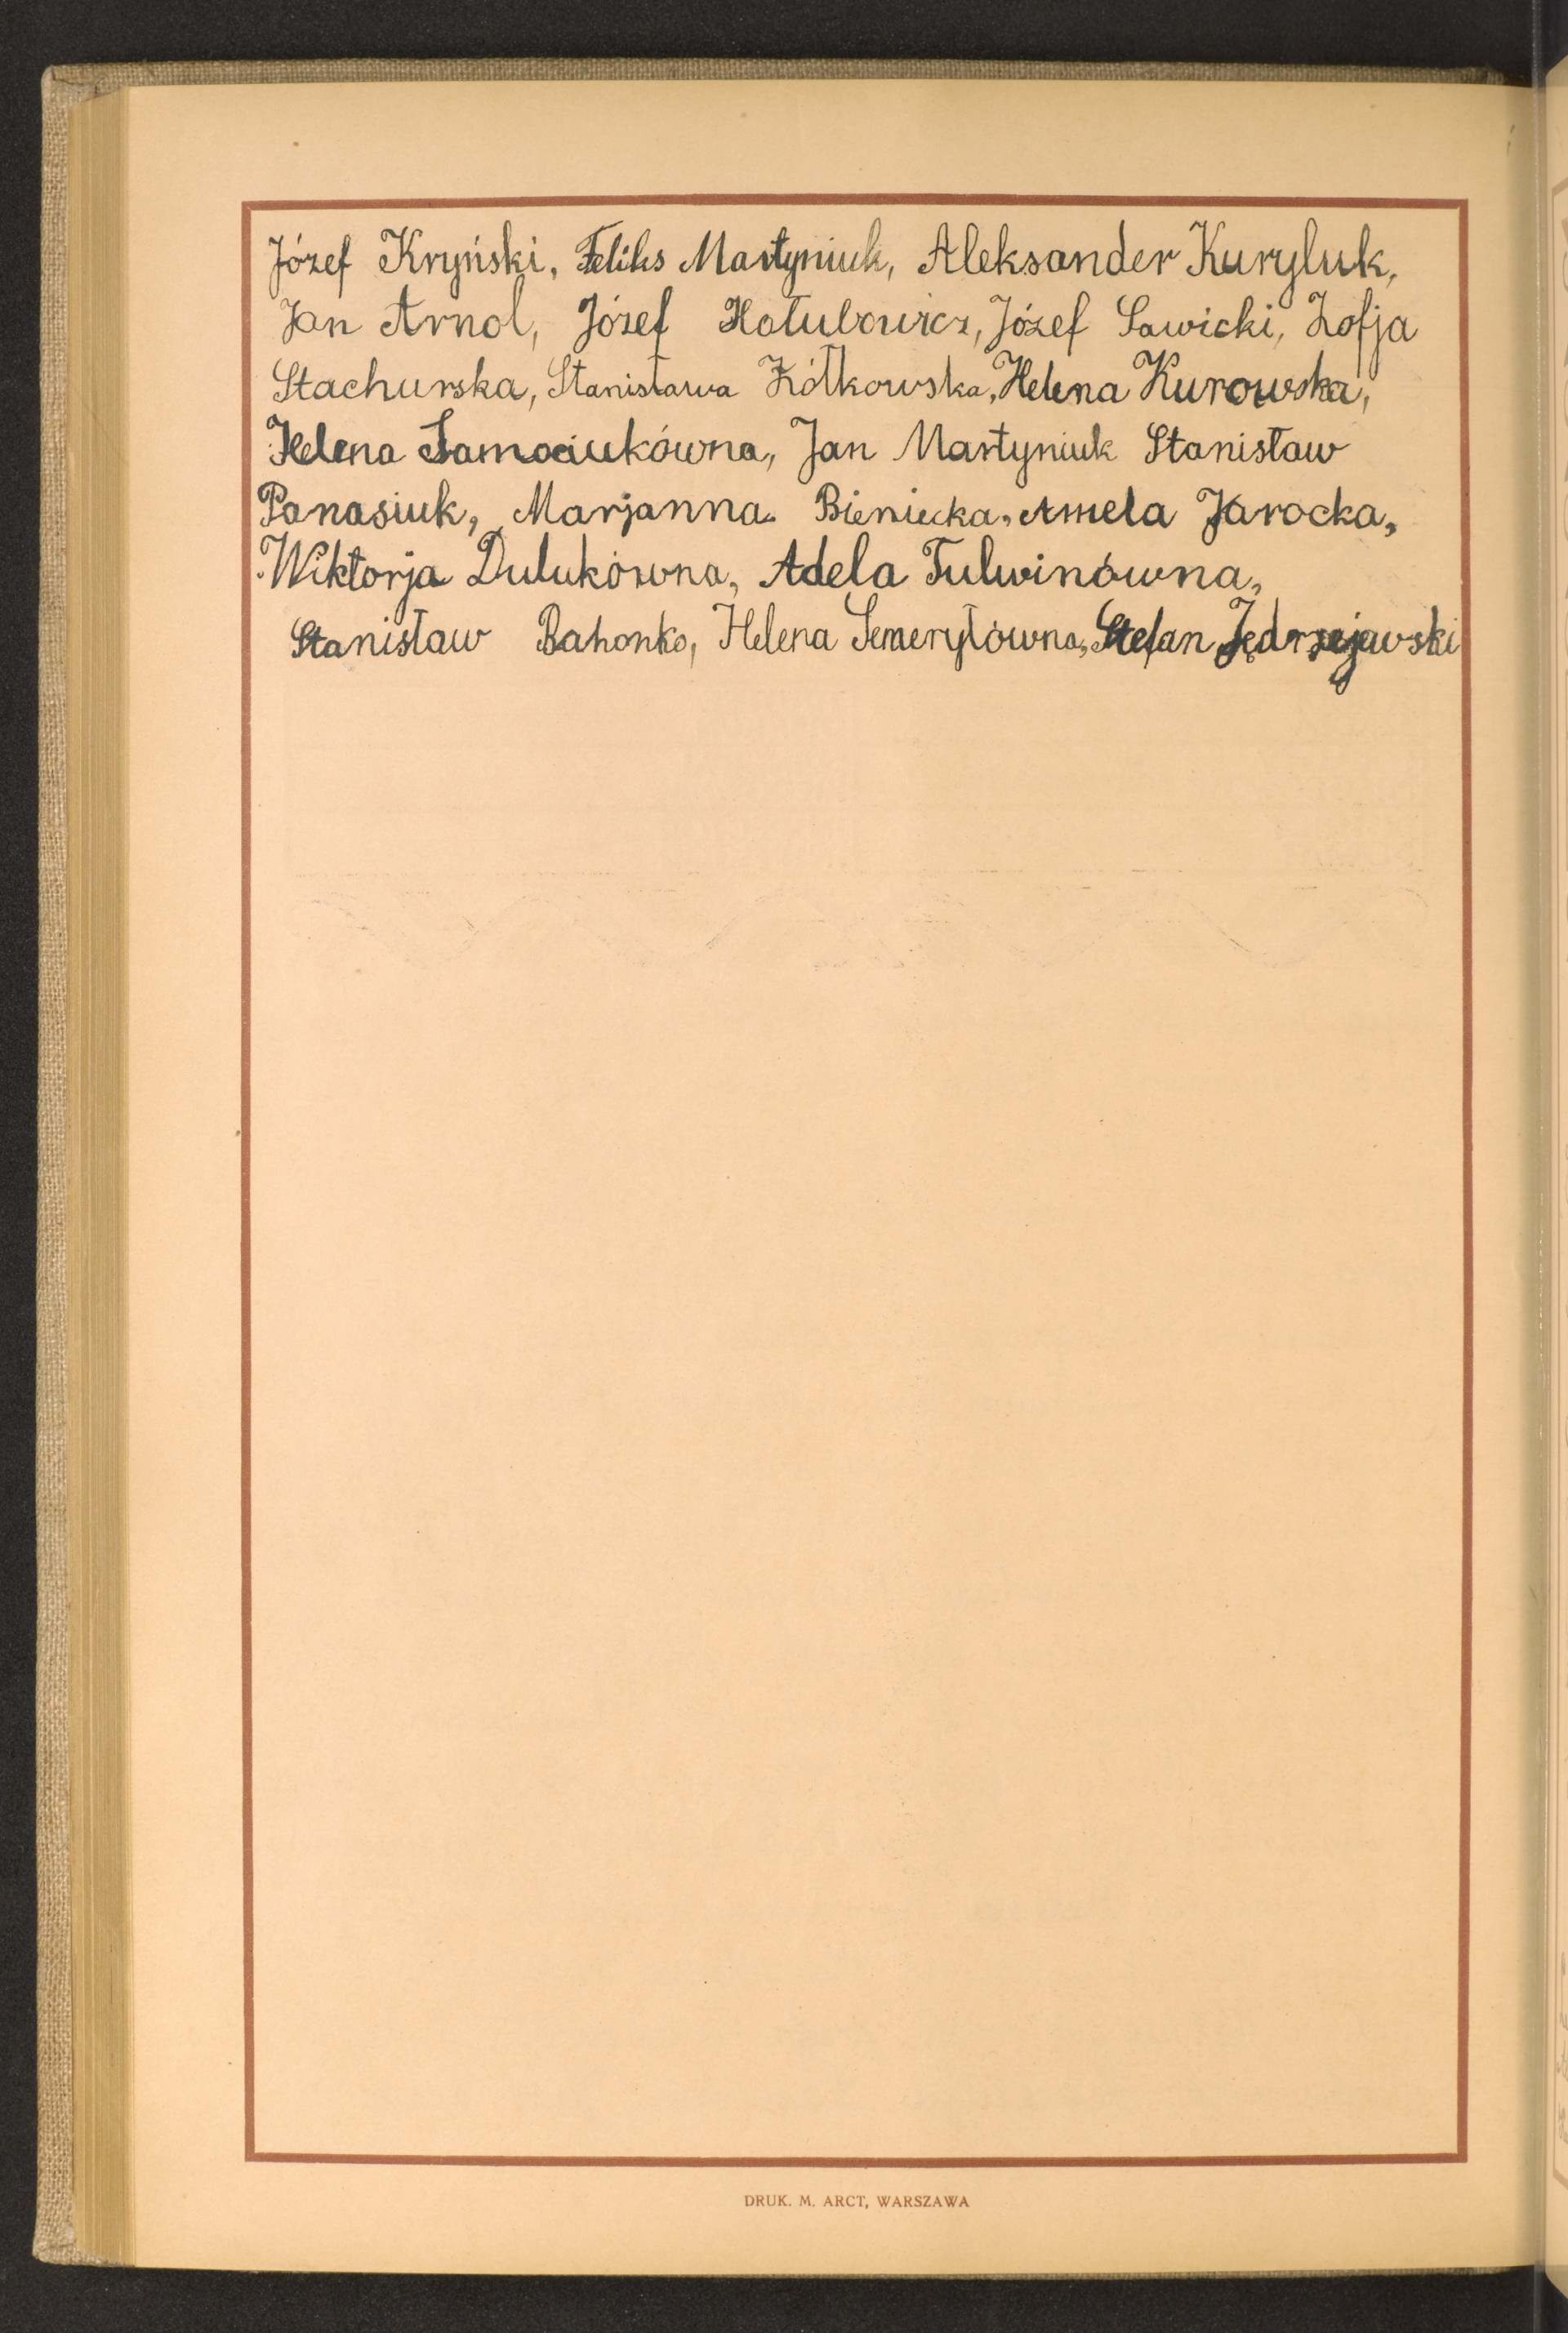 Józef Kryński, Feliks Martyniuk, Aleksander Kuryluk,
Jan Arnol, Józef Hołubowicz, Józef Sawicki, Zofja
Stachurska, Stanisława Żółkowska, Helena Kurowska,
Helena Samociukówna, Jan Martyniuk Stanisław
Panasiuk, Marjanna Bieniecka, Amela Jarocka,
Wiktorja Dulukówna, Adela Tulwinówna,
Stanisław Bahonko, Helena Semeryłówna, Stefan Jędrzejewski
DRUK. M. ARCT, WARSZAWA